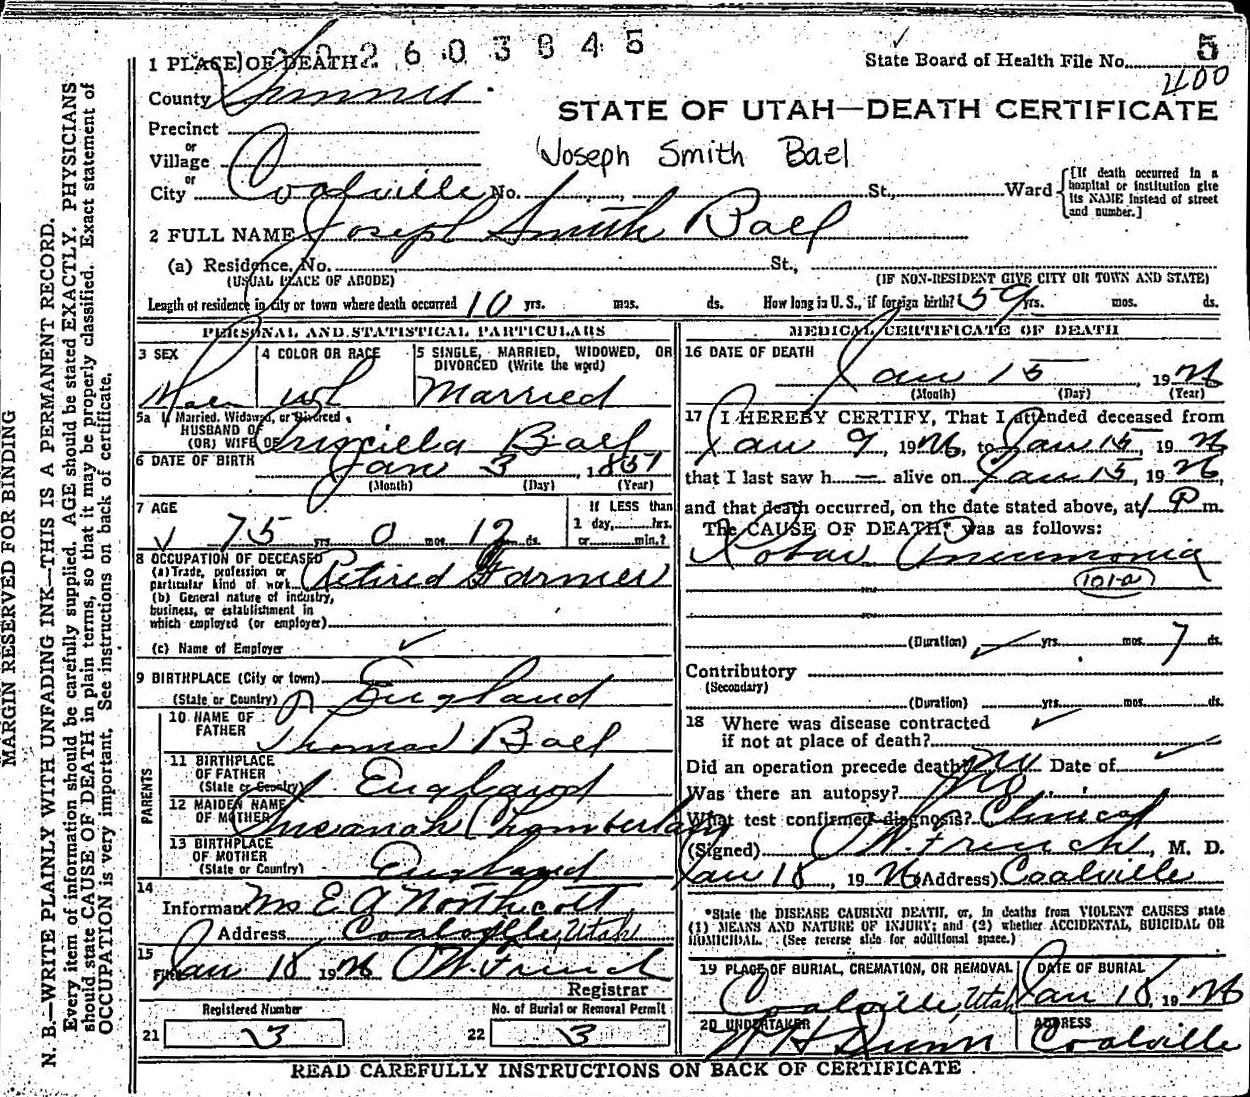 MARGIN RESERVED FOR BINDING
N. B.—WRITE PLAINLY WITH UNFADING INK—THIS IS A PERMANENT RECORD.
Every item of information should be carefully supplied. AGE should be stated EXACTLY. PHYSICIANS
should state CAUSE OF DEATH in plain terms, so that it may be properly classified. Exact statement of
OCCUPATION is very important. See instructions on back of certificate.
2603845
1 PLACE OF DEATH
State Board of Health File No. 5
400
County Summit
STATE OF UTAH—DEATH CERTIFICATE
Precinct
or
Village
Joseph Smith Bael
or
City Coalville No. St., Ward
[If death occurred in a hospital or institution give its NAME instead of street and number.]
2 FULL NAME Joseph Smith Ball
(a) Residence. No. St.,
(USUAL PLACE OF ABODE) (IF NON-RESIDENT GIVE CITY OR TOWN AND STATE)
Length of residence in city or town where death occurred 10 yrs. mos. ds. How long in U.S., if foreign birth? 59 yrs. mos. ds.
PERSONAL AND STATISTICAL PARTICULARS
3 SEX
Male
4 COLOR OR RACE
wh
5 SINGLE, MARRIED, WIDOWED, OR DIVORCED (Write the word)
Married
5a If Married, Widowed, or Divorced
HUSBAND OF
(OR) WIFE OF Priscilla Ball
6 DATE OF BIRTH Jan 3, 1851
(Month) (Day) (Year)
7 AGE
75 yrs. 0 mos. 12 ds.
If LESS than
1 day, hrs.
or min.?
8 OCCUPATION OF DECEASED
(a) Trade, profession or
particular kind of work Retired Farmer
(b) General nature of industry,
business, or establishment in
which employed (or employer)
(c) Name of Employer
9 BIRTHPLACE (City or town)
(State or Country) England
PARENTS
10 NAME OF
FATHER Thomas Ball
11 BIRTHPLACE
OF FATHER
(State or Country) England
12 MAIDEN NAME
OF MOTHER Susanah Chamberlain
13 BIRTHPLACE
OF MOTHER
(State or Country) England
14
Informant Mrs E A Northcott
Address Coalville, Utah
15
Filed Jan 18 1926 O W. French
Registrar
Registered Number
21 3
No. of Burial or Removal Permit
22 3
MEDICAL CERTIFICATE OF DEATH
16 DATE OF DEATH
Jan 15, 1926
(Month) (Day) (Year)
17 I HEREBY CERTIFY, That I attended deceased from
Jan 9, 1926, to Jan 15, 1926
that I last saw h— alive on Jan 15, 1926,
and that death occurred, on the date stated above, at 1 P m.
The CAUSE OF DEATH* was as follows:
Lobar Pneumonia
101-a
(Duration) yrs. mos. 7 ds.
Contributory
(Secondary)
(Duration) yrs. mos. ds.
18 Where was disease contracted
if not at place of death?
Did an operation precede death? No Date of
Was there an autopsy? No
What test confirmed diagnosis? Clinical
(Signed) O W. French, M. D.
Jan 18, 1926 (Address) Coalville
*State the DISEASE CAUSING DEATH, or, in deaths from VIOLENT CAUSES state
(1) MEANS AND NATURE OF INJURY; and (2) whether ACCIDENTAL, SUICIDAL OR
HOMICIDAL. (See reverse side for additional space.)
19 PLACE OF BURIAL, CREMATION, OR REMOVAL
Coalville, Utah
DATE OF BURIAL
Jan 18, 1926
20 UNDERTAKER
W H Dunn
ADDRESS
Coalville
READ CAREFULLY INSTRUCTIONS ON BACK OF CERTIFICATE